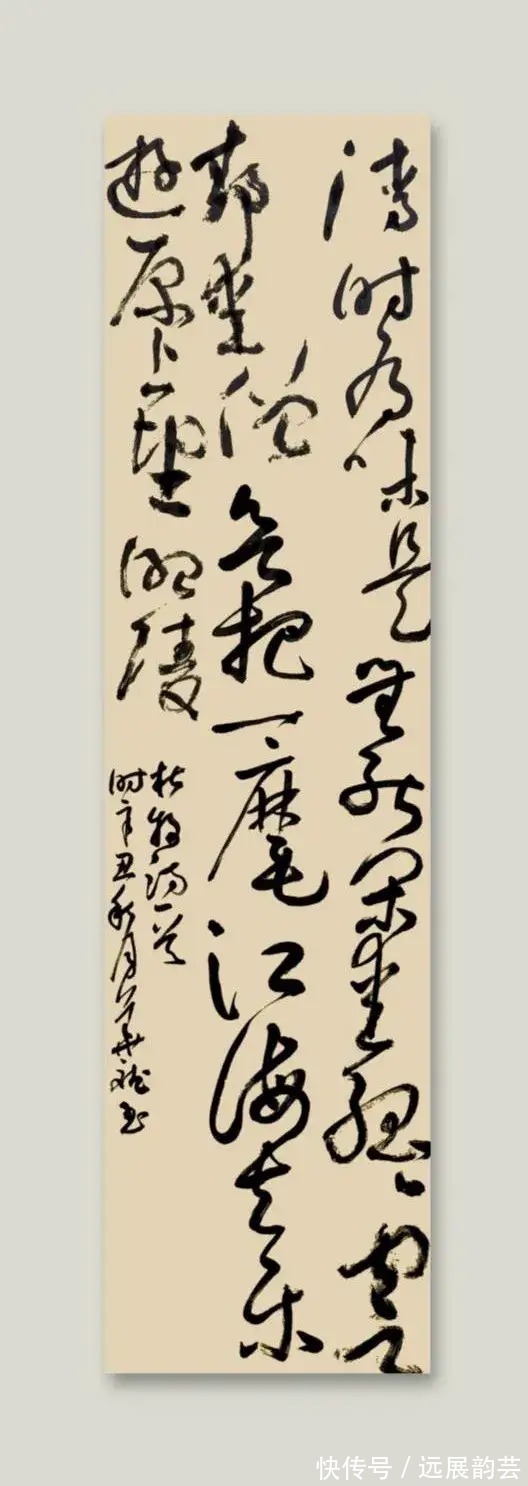 清时有味是無能闲愛孤雲
静愛僧欲把一麾江海去乐
遊原上望昭陵
杜牧诗一首
时辛丑秋月
快传号／远展韵芸